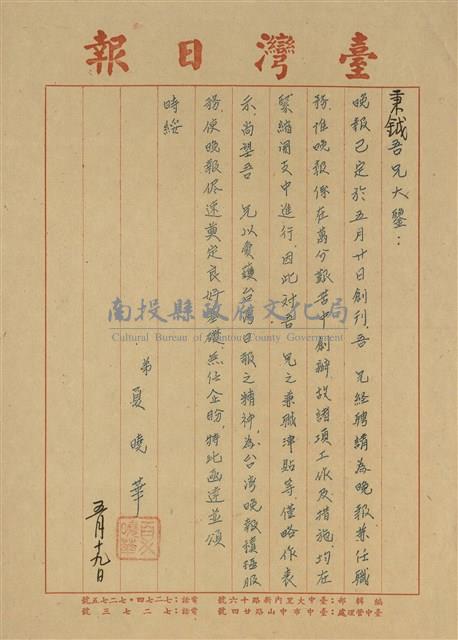 臺灣日報
秉鉞吾兄大鑒：
晚報已定於五月廿日創刊，吾　兄經聘請為晚報兼任職
務，惟晚報係在萬分艱苦中創辦，故諸項工作及措施均在
緊縮開支中進行，因此對吾　兄之兼職津貼等，僅略作表
示，尚望吾　兄以愛護台灣日報之精神，為台灣晚報積極服
務，使晚報儘速奠定良好基礎，無任企盼，特此函達並頌
時綏
弟夏曉華
五月十九日
南投縣政府文化局
Cultural Bureau of Nantou County Government
編輯部：臺中大里內新路十六號　電話：二七二四・二七七五號
臺中管理處：臺中市中山路廿四號　電話：七二七三號